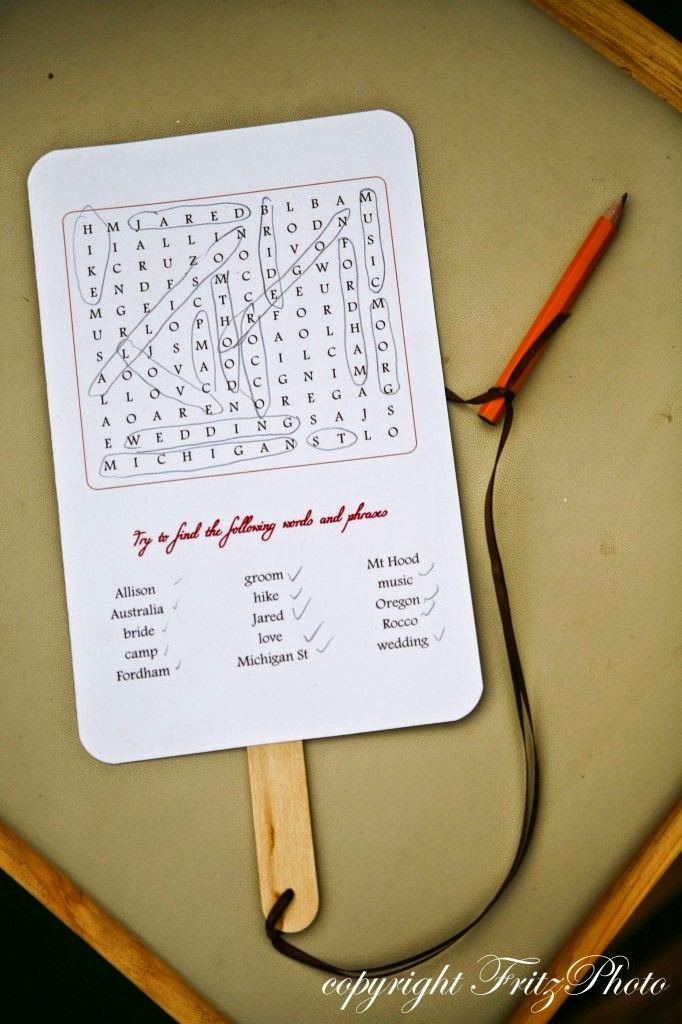 H M J A R E D B L B A M
I I A L L I N R O D N U
K C R U Z O O I V O F S
E N D F S M C D G W O I
M G E I C T C E E U R C
U R L O P H R F O R D M
S L J S M O O A O L H O
A O O V A O C I L C A O
L L O V C D C G N I M R
A O A R E N O R E G A G
E W E D D I N G S A J S
M I C H I G A N S T L O
Try to find the following words and phrases
Allison
Australia
bride
camp
Fordham
groom
hike
Jared
love
Michigan St
Mt Hood
music
Oregon
Rocco
wedding
copyright FritzPhoto